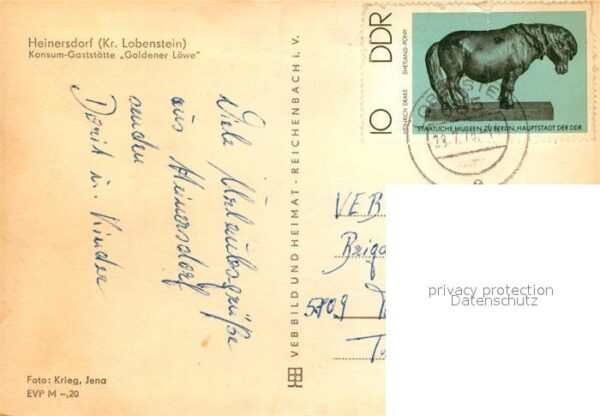 Heinersdorf (Kr. Lobenstein)
Konsum-Gaststätte „Goldener Löwe"
Viele Urlaubsgrüße
aus Heinersdorf
senden
Dorit u. Kinder
Foto: Krieg, Jena
EVP M –.20
VEB BILD UND HEIMAT · REICHENBACH i. V.
10 DDR
HEINRICH DRAKE SHETLAND-PONY
STAATLICHE MUSEEN ZU BERLIN, HAUPTSTADT DER DDR
VEB
5709
privacy protection
Datenschutz